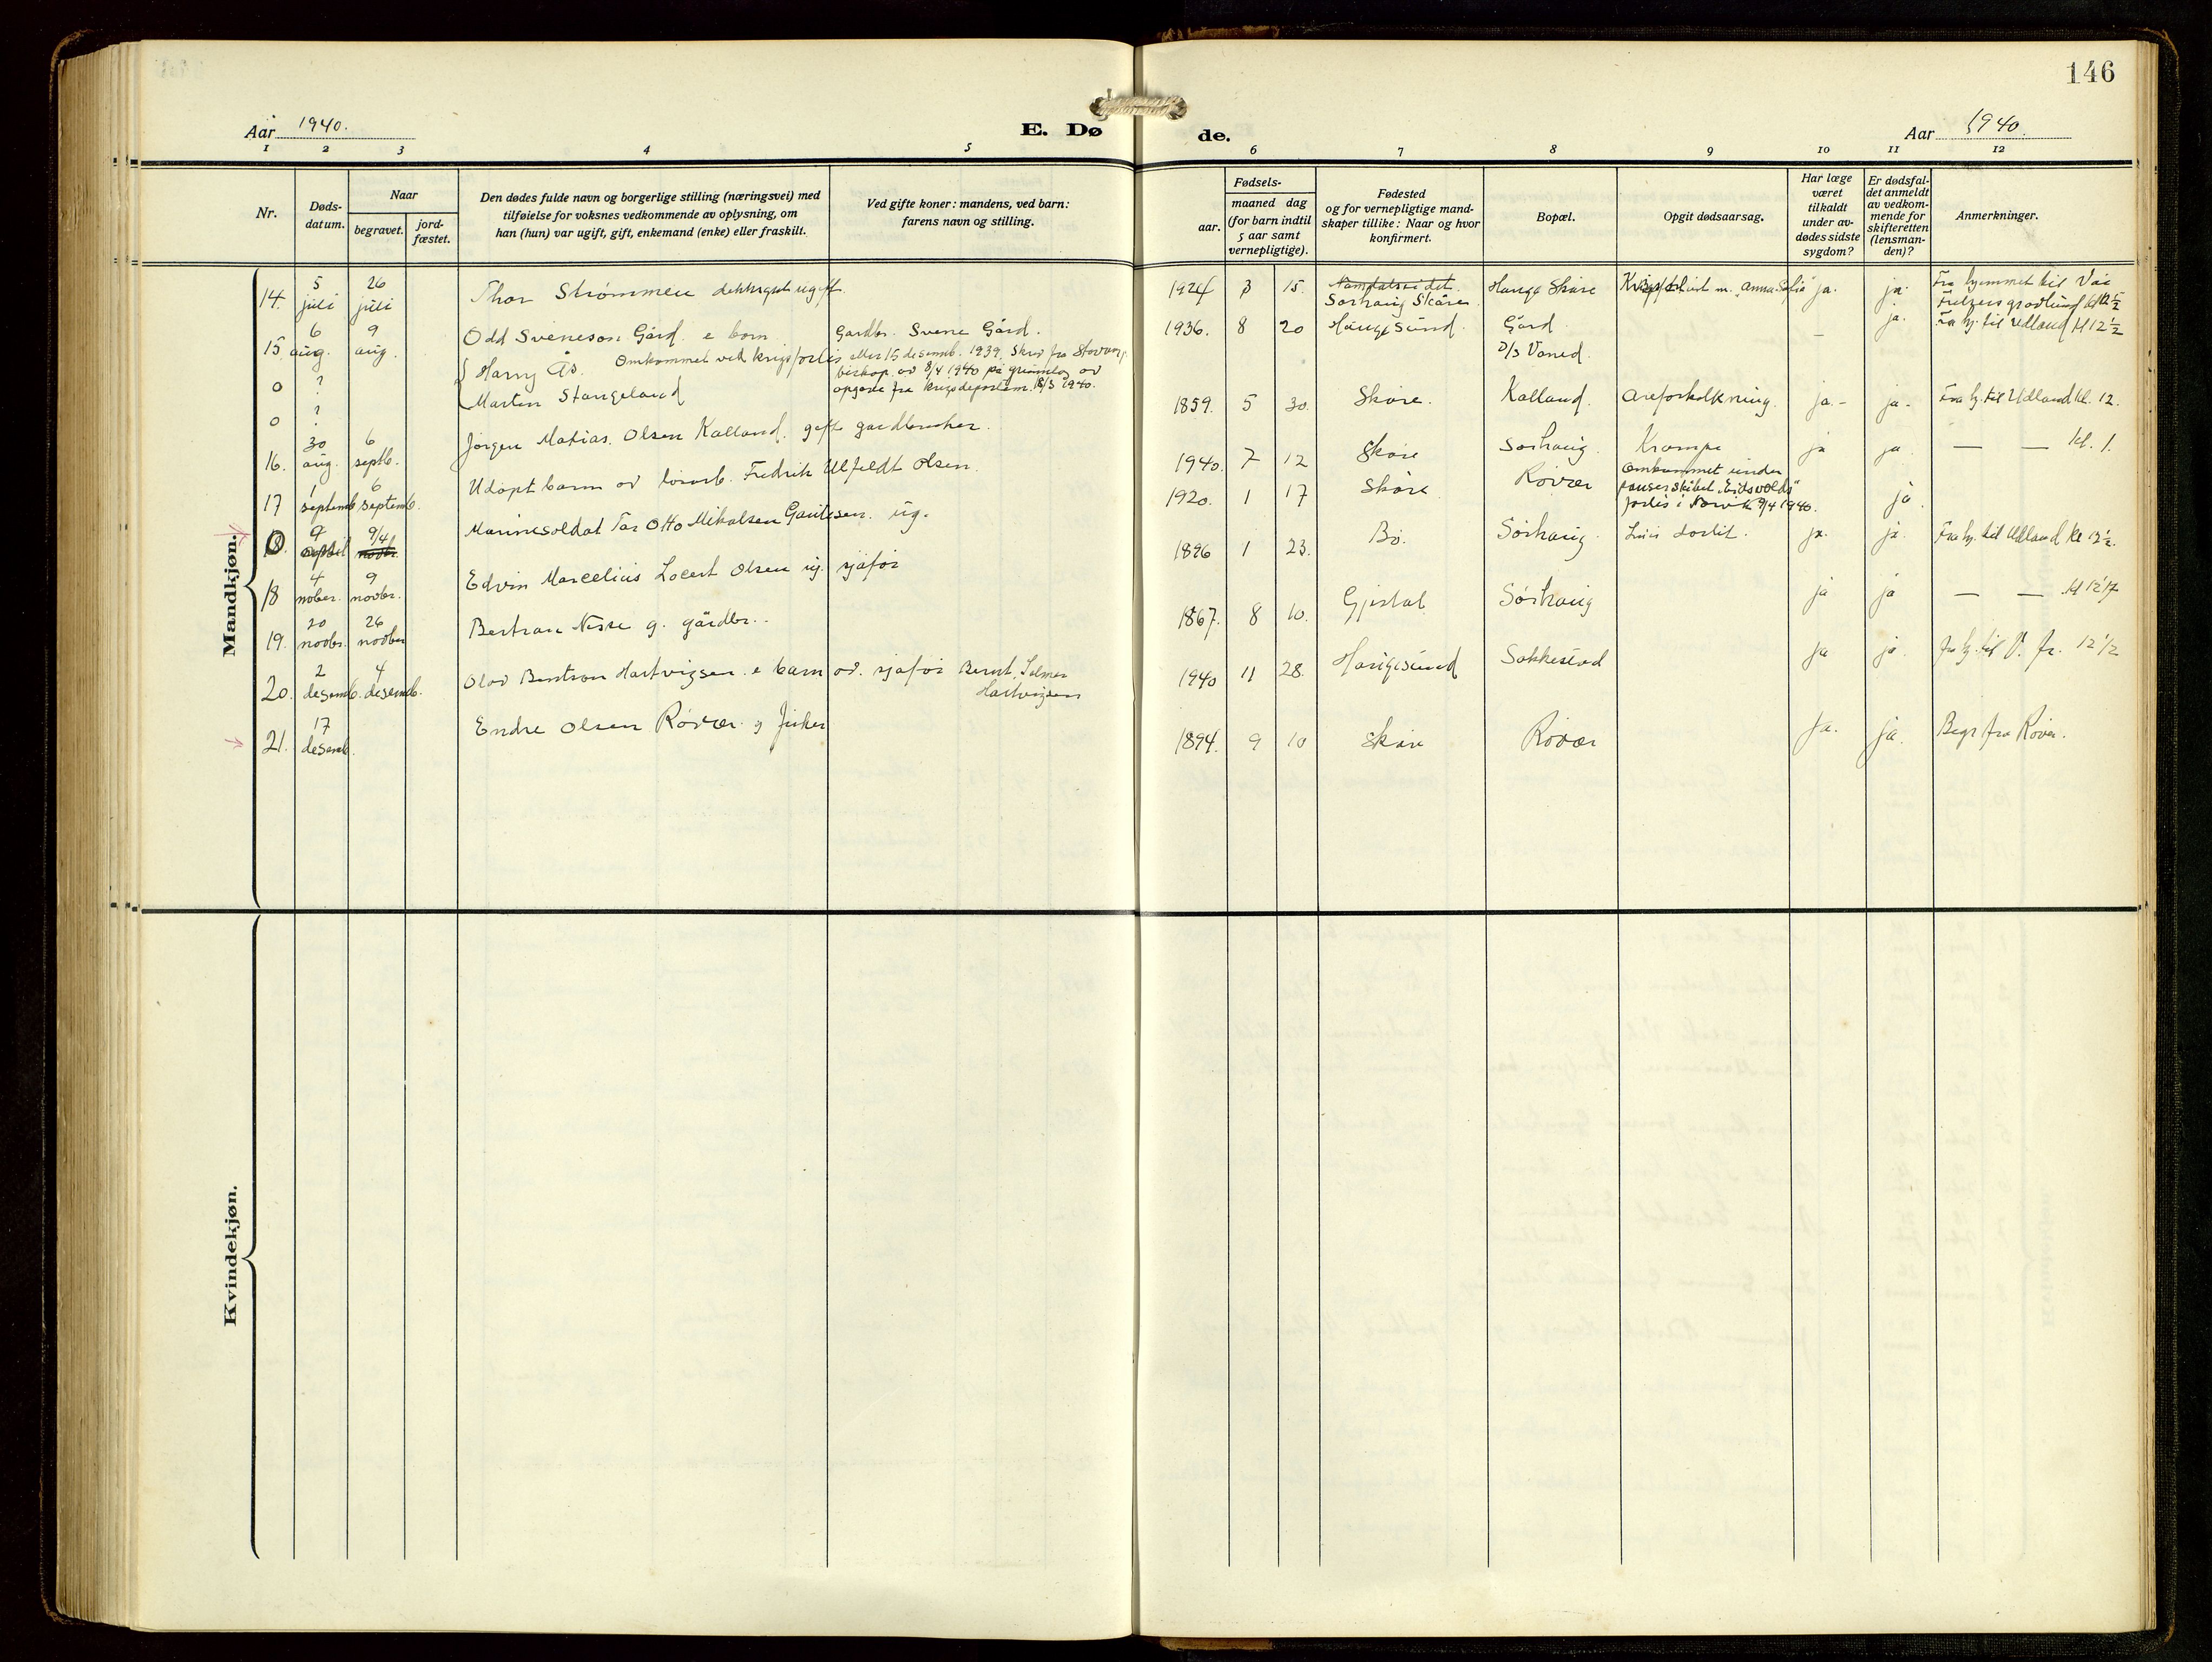 146
Aar 1940.
E. Dø de.
Aar 1940.
1 2 3 4 5 6 7 8 9 10 11 12
Nr.
Døds-
datum.
Naar
begravet.
jord-
fæstet.
Den dødes fulde navn og borgerlige stilling (næringsvei) med
tilføielse for voksnes vedkommende av oplysning, om
han (hun) var ugift, gift, enkemand (enke) eller fraskilt.
Ved gifte koner: mandens, ved barn:
farens navn og stilling.
Fødsels-
aar.
maaned dag
(for barn indtil
5 aar samt
vernepligtige).
Fødested
og for vernepligtige mand-
skaper tillike: Naar og hvor
konfirmert.
Bopæl.
Opgit dødsaarsag.
Har læge
været
tilkaldt
under av-
dødes sidste
sygdom?
Er dødsfal-
det anmeldt
av vedkom-
mende for
skifteretten
(lensman-
den)?
Anmerkninger.
Mandkjøn.
14. 5 juli 26 juli Thor Strømmen dekksgut ugift 1924 3 15. Sørhaug Skåre Hauge Skåre m. Anna Sofia ja. ja. Fra hjemmet til Vår
Frelsers gravlund kl 12 1/2
15 6 aug. 9 aug. Odd Sveneson Gård e barn Gardbr. Svene Gård. 1936. 8 20 Haugesund. Gård – ja. Fra hj. til Udland kl 12 1/2
0 ? Harry Ås. Omkommet ved krigsforlis etter 15 desemb. 1939. Skriv fra Stavang.
biskop. av 8/4 1940 på grunnlag av
opgave fra 1940. D/S Vaned.
0 ? Martin Stangeland
16. 30 aug. 6 septb. Jørgen Matias Olsen Kalland. gift gardbruker. 1859. 5 30. Skåre. Kalland. Areforkalkning. ja.- ja- Fra hj. til Udland kl. 12.
17 1 septemb 6 septemb. Udøpt barn av Fredrik Ulfeldt Olsen. 1940. 7 12 Skåre Sørhaug. Krampe ja ja — — kl. 1.
0 9 april 9/4 Marinesoldat Tar Otto Mikalsen Gautesen. ug. 1920. 1 17 Skåre Røvær Omkommet under
panserskibet "Eidsvolds"
forlis i Narvik 9/4 1940. ja.
18 4 nober. 9 novbr. Edvin Marcelius Locert Olsen ug. sjåfør 1896 1 23. Bø. Sørhaug. ja. ja. Fra hj. til Udland kl 12 1/2.
19. 20 novbr. 26 novbr Bertran Nesse g. gårdbr.. 1867. 8 10. Gjestal Sørhaug ja ja — — kl 12 1/2
20. 2 desemb. 4 desemb. Olav Bentson Hartvigsen. e barn av. sjåfør Bernt Selmer
Hartvigsen 1940 11 28. Haugesund Sakkestad ja ja. fra hj. til V. fr. 12 1/2
21. 17 desemb. Endre Olsen Røvær. g fisker 1894. 9 10 Skåre Røvær ja. ja. Begr fra Røvær.
Kvindekjøn.